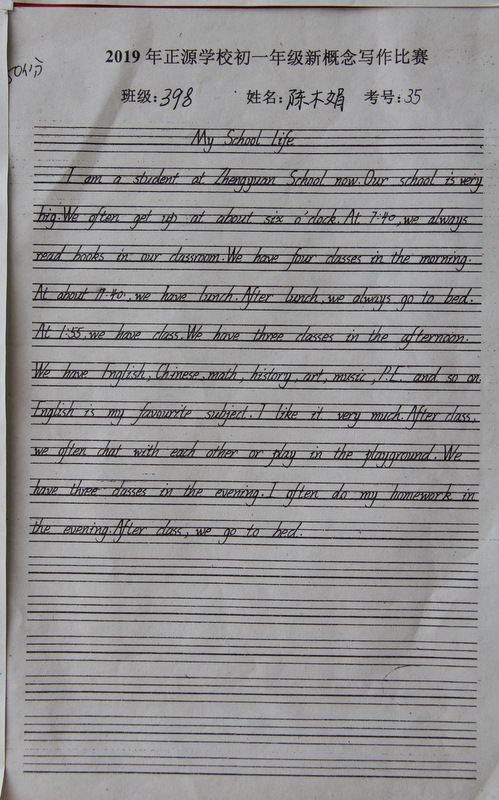 2019年正源学校初一年级新概念写作比赛
50分
班级:398 姓名:陈木娟 考号:35
My School Life
I am a student at Zhengyuan School now. Our school is very
big. We often get up at about six o'clock. At 7:40, we always
read books in our classroom. We have four classes in the morning.
At about 11:40, we have lunch. After lunch, we always go to bed.
At 1:55, we have class. We have three classes in the afternoon.
We have English, Chinese, math, history, art, music, P.E. and so on.
English is my favourite subject. I like it very much. After class,
we often chat with each other or play in the playground. We
have three classes in the evening. I often do my homework in
the evening. After class, we go to bed.